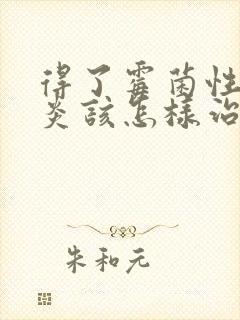 得了霉菌性
炎該怎樣治
朱和元